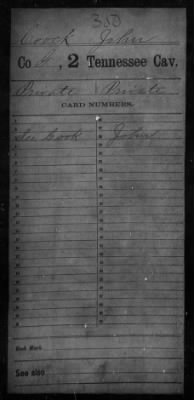 380
Coock John
Co , 2 Tennessee Cav.
Private Private
CARD NUMBERS.
See Cook John
Book Mark:
See also